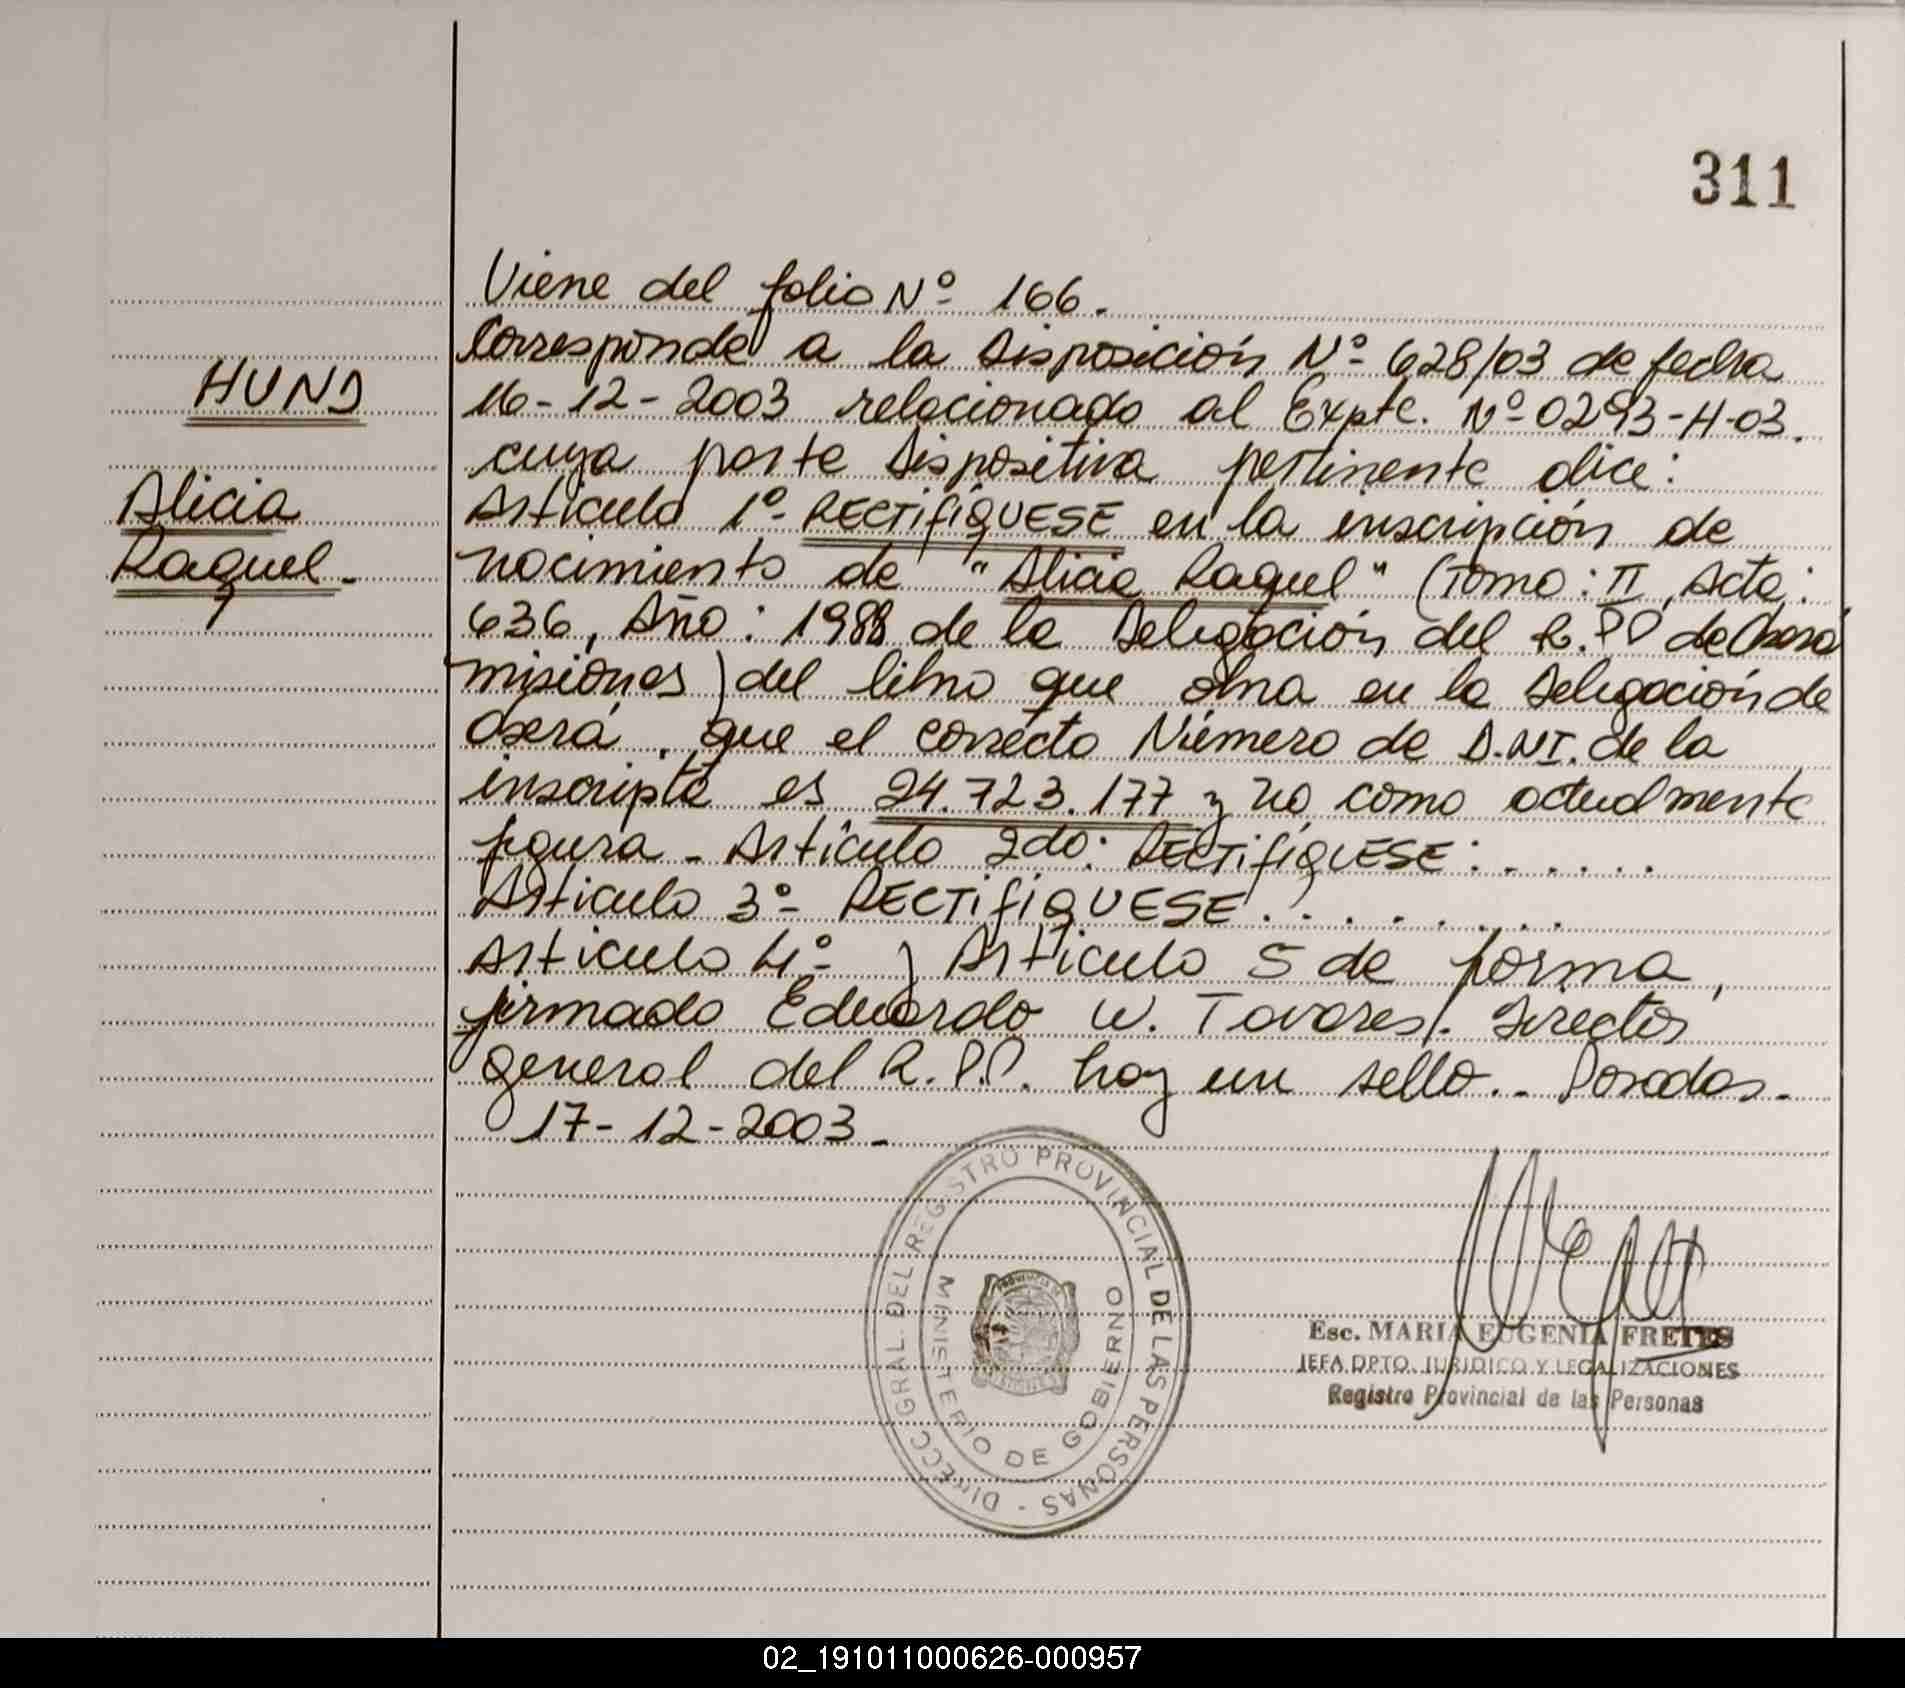 311
Viene del folio Nº 166.
Corresponde a la Disposición Nº 628/03 de fecha
HUND
16-12-2003 relacionado al Expte. Nº 0293-H-03.
cuya parte Dispositiva pertinente dice:
Alicia
Artículo 1º- RECTIFÍQUESE en la inscripción de
Raquel-
nacimiento de "Alicia Raquel" (Tomo: II, Acta:
636, Año: 1988 de la Delegación del R.PP de Oberá
misiones) del libro que obra en la Delegación de
Oberá, que el correcto Número de D.NI. de la
inscripta es 24.723.177 y no como actualmente
figura - Artículo 2do: RECTIFÍQUESE: . . . . . .
Artículo 3º- RECTIFÍQUESE. . . . . . . .
Artículo 4º- y Artículo 5 de forma,
firmado Eduardo W. Tavares. Director
general del R.P.P. hay un sello.- Posadas-
17-12-2003-
DIRECC. GRAL. DEL REGISTRO PROVINCIAL DE LAS PERSONAS -
MINISTERIO DE GOBIERNO
PROVINCIA DE
MISIONES
Esc. MARIA EUGENIA FRETES
JEFA DPTO. JURIDICO Y LEGALIZACIONES
Registro Provincial de las Personas
02_191011000626-000957